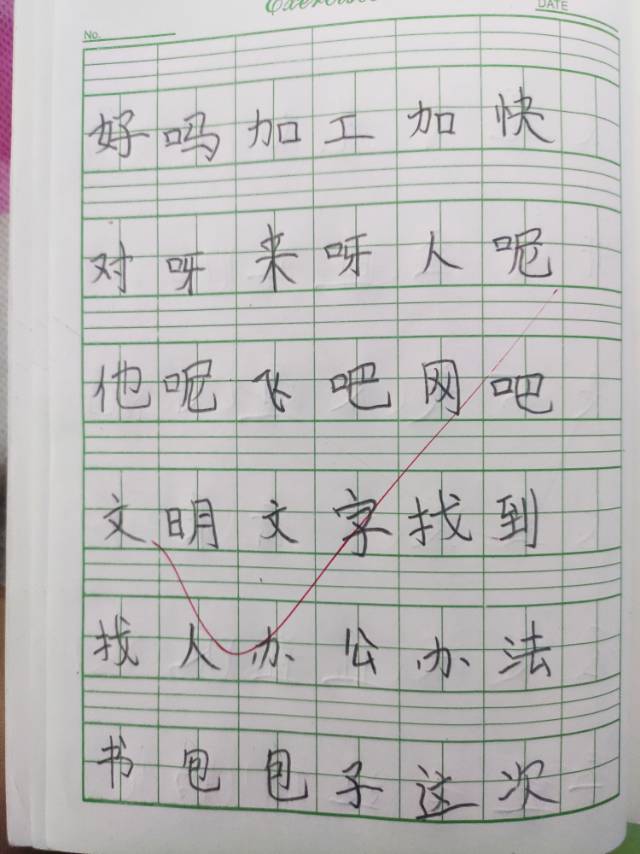 Exercise
No.
DATE
好吗加工加快
对呀来呀人呢
他呢飞吧网吧
文明文字找到
找人办公办法
书包包子这次